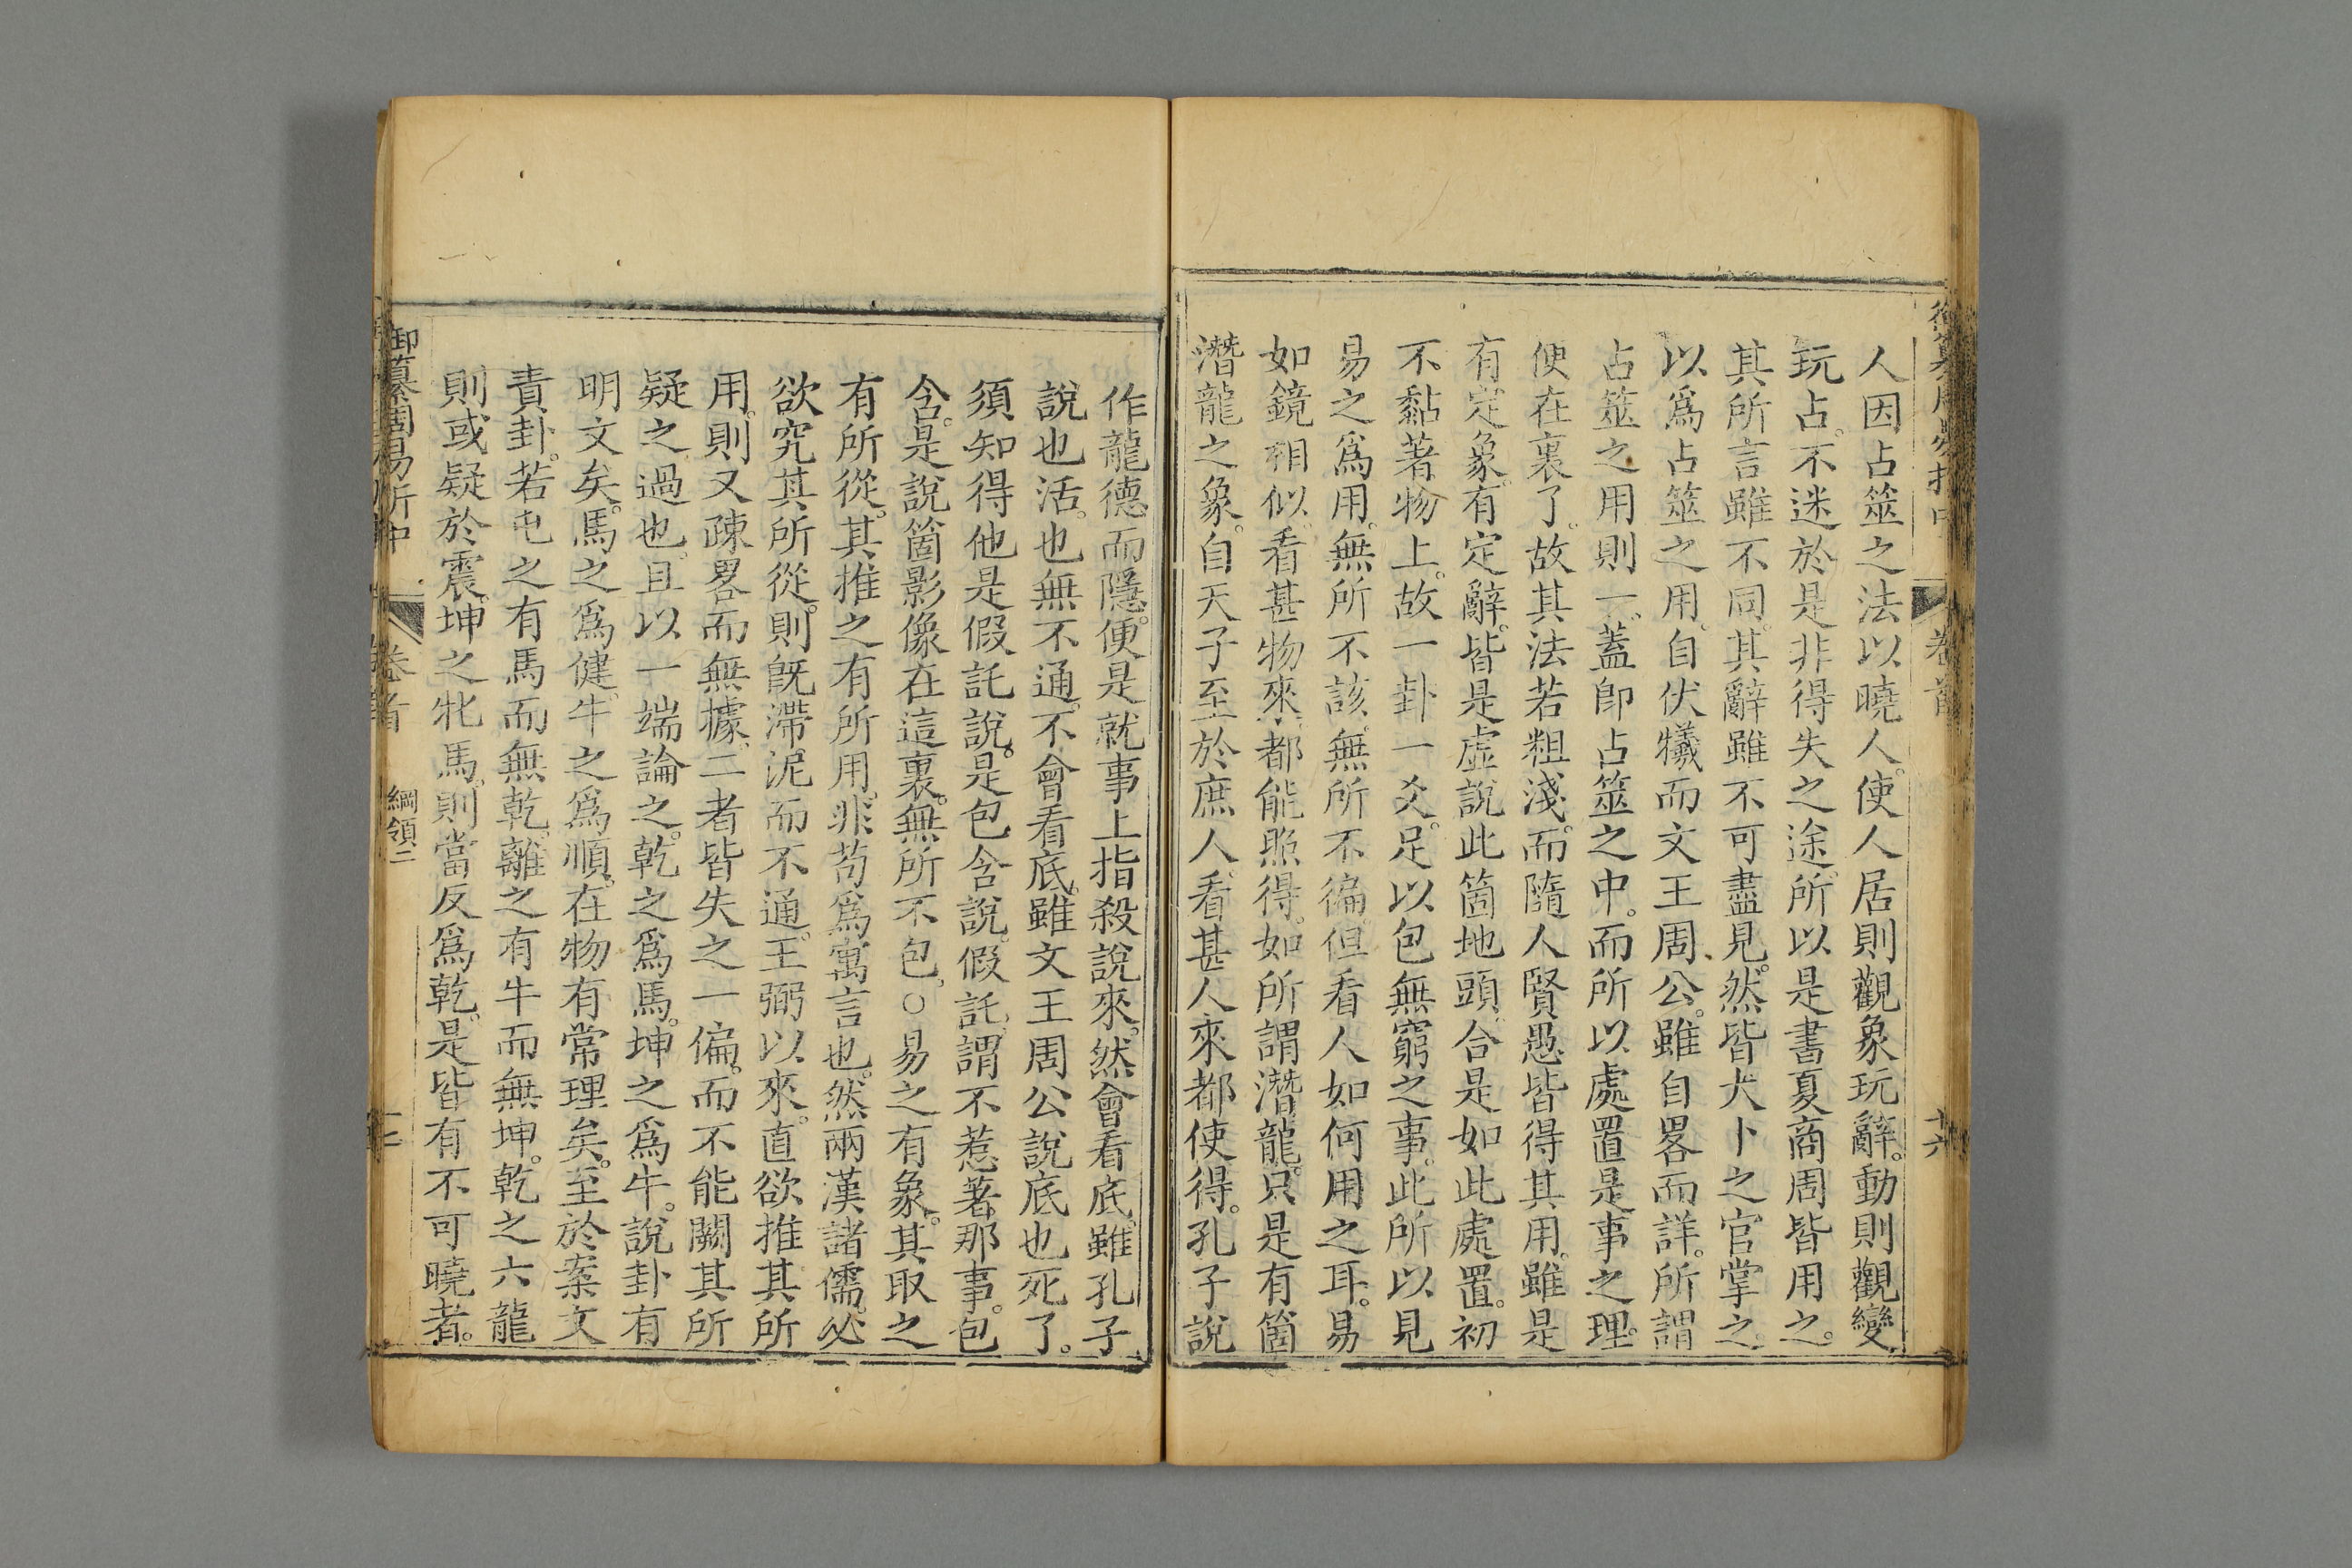 人因占筮之法以曉人。使人居則觀象玩辭。動則觀變
玩占。不迷於是非得失之途。所以是書夏商周皆用之。
其所言雖不同。其辭雖不可盡見。然皆大卜之官掌之。
以爲占筮之用。自伏犧而文王周公。雖自畧而詳。所謂
占筮之用則一。蓋即占筮之中。而所以處置是事之理。
便在裏了。故其法若粗淺。而隨人賢愚皆得其用。雖是
有定象。有定辭。皆是虛說此箇地頭。合是如此處置。初
不黏著物上。故一卦一爻。足以包無窮之事。此所以見
易之爲用。無所不該。無所不徧。但看人如何用之耳。易
如鏡相似。看甚物來。都能照得。如所謂潛龍。只是有箇
潛龍之象。自天子至於庶人。看甚人來都使得。孔子說
作龍德而隱。便是就事上指殺說來。然會看底。雖孔子
說也活。也無不通。不會看底。雖文王周公說底也死了。
須知得他是假託說。是包含說。假託。謂不惹著那事。包
含。是說箇影像在這裏。無所不包。○易之有象。其取之
有所從。其推之有所用。非苟爲寓言也。然兩漢諸儒。必
欲究其所從。則旣滯泥而不通。王弼以來。直欲推其所
用。則又疎畧而無據。二者皆失之一偏。而不能闕其所
疑之過也。且以一端論之。乾之爲馬。坤之爲牛。說卦有
明文矣。馬之爲健。牛之爲順。在物有常理矣。至於案文
責卦。若屯之有馬而無乾。離之有牛而無坤。乾之六龍
則或疑於震。坤之牝馬。則當反爲乾。是皆有不可曉者。
御纂周易折中
卷首
綱領二